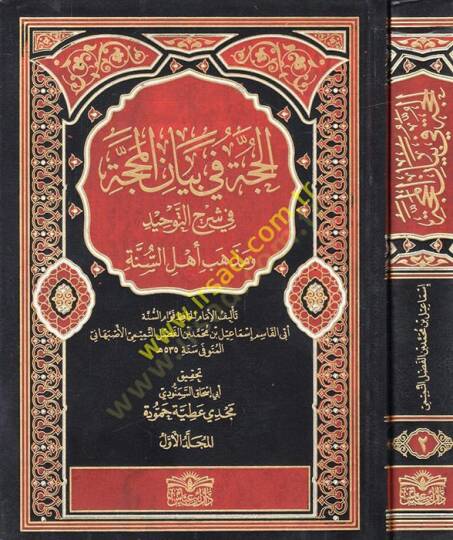 الحجة في بيان المحجة
في شرح التوحيد
ومذهب أهل السنة
تأليف الإمام الحافظ قوام السنة
أبي القاسم إسماعيل بن محمد بن الفضل التيمي الأصبهاني
المتوفى سنة ٥٣٥ هـ
تحقيق
أبي إسحاق السمنودي
مجدي عطية حمودة
المجلد الأول
الحجة في بيان المحجة
إسماعيل بن محمد بن الفضل التيمي
٢
www.irsad.com.tr